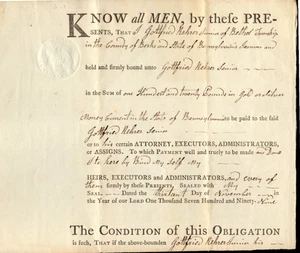 KNOW all MEN, by these PRE-
SENTS, THAT I Gottfried Rehrer Junior of Bethel Township
in the County of Berks and State of Pennsylvania
held and firmly bound unto Gottfried Rehrer Senior
in the SUM of one Hundred and twenty Pounds in Gold or Silver
Money Current in the State of Pennsylvania to be paid to the said
Gottfried Rehrer Senior
or to his certain ATTORNEY, EXECUTORS, ADMINISTRATORS,
or ASSIGNS. To which PAYMENT well and truly to be made
Bind My self My
HEIRS, EXECUTORS and ADMINISTRATORS, and every of
them firmly by these PRESENTS. SEALED with My
SEAL. DATED the Day of November
in the YEAR of our LORD One Thousand Seven Hundred and Ninety Nine
THE CONDITION of this OBLIGATION
is such, THAT if the above-bounden Gottfried Rehrer Junior his